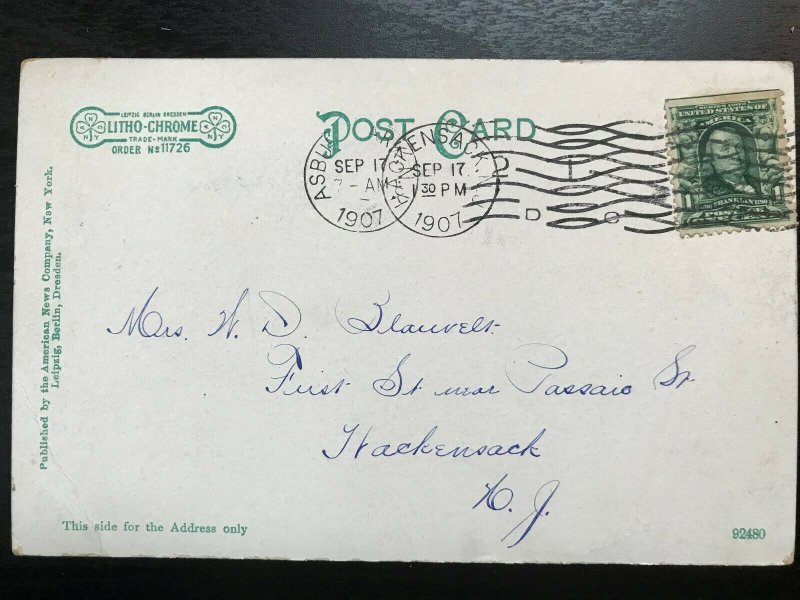 LEIPZIG BERLIN DRESDEN
LITHO-CHROME
TRADE-MARK
ORDER No 11726
POST CARD
ASBU
SEP 17
AM
1907
HACKENSACK, N.J.
SEP 17
1 30 PM
1907
D
SERIES 1902
UNITED STATES OF
AMERICA
FRANKLIN
Mrs. W. D. Blauvelt
First St. near Passaic St.
Hackensack
N. J.
Published by the American News Company, New York.
Leipzig, Berlin, Dresden.
This side for the Address only
92480